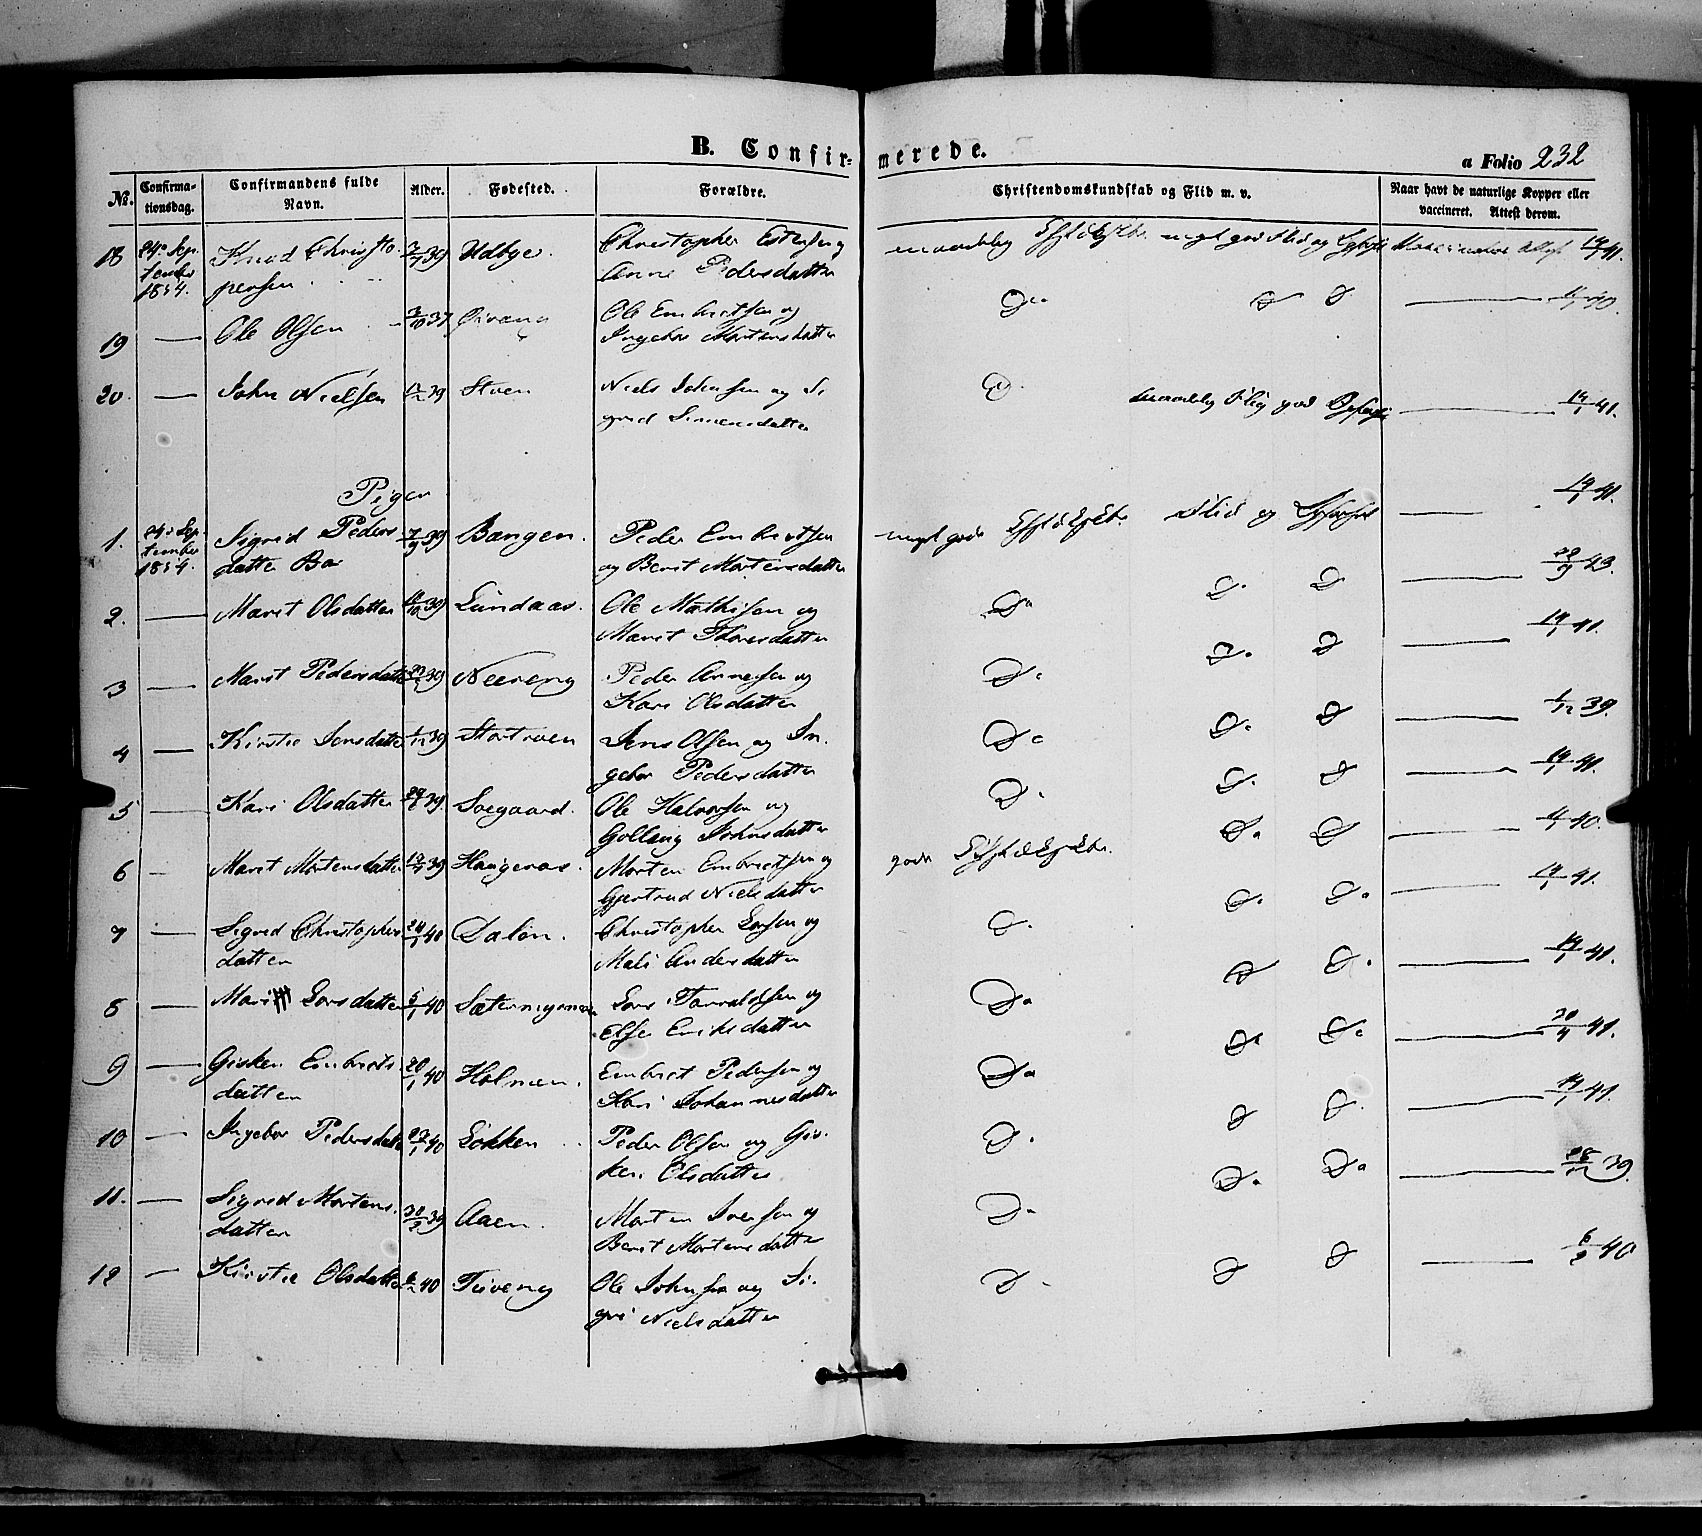 B. Confirmerede.
a Folio 232
No.
Confirmationsdag.
Confirmandens fulde Navn.
Alder.
Fødested.
Forældre.
Christendomskundskab og Flid m. v.
Naar havt de naturlige Kopper eller vaccineret. Attest derom.
18 24de September 1854. Knud Christopersen 39 Udbye. Christopher Estensen og Anne Pedersdatter 19/1 41.
19 — Ole Olsen 37 Ole Embretsen og Ingebor Mortensdatter Do D D — 40.
20. — John Nielsen 39 Stuen Niels Johnsen og Sigrid Simensdatter D. — 19/1 41.
Piger
1. 24de September 1854. Sigrid Pedersdatter 7/9 39 Bangen. Peder Embretsen og Berit Mortensdatter meget gode Flid og — 19/1 41.
2. — Marit Olsdatter 39 Lundaas. Ole Mathisen og Marit Thoresdatter Do D. D — 28/9 43.
3 — Marit Pedersdatter 39 Neereng Peder Arnesen og Kari Olsdatter D. D. D — 19/1 41.
4 — Kirstie Jensdatter 39 Stortrøen Jens Olsen og Ingebor Pedersdatter Do D. D — 1/12 39.
5 — Kari Olsdatter 39. Soegaard. Ole Halvorsen og Golleug Johnsdatter D. D. D — 19/1 41.
6 — Marit Mortensdatter 39 Haugeraas. Morten Embretsen og Gjertrud Nielsdatter gode D. D — 40.
7 — Sigrid Christophersdatter 40 Dalen. Christopher Larsen og Mali Andersdatter D. D. D. — 19/1 41.
8 — Mari Larsdatter 5/1 40 Lars Taraldsen og Else Eriksdatter Do D D. — 19/1 41.
9 — Gisken Embretsdatter 20/1 40 Holmen. Embret Pedersen og Kari Johannesdatter Do D. D. — 20/4 41.
10 — Ingebor Pedersdatter 40 Løkken Peder Olsen og Gisken Olsdatter D. D D. — 19/1 41.
11. — Sigrid Mortensdatter 39 Aaen. Morten Iversen og Berit Mortensdatter D. D. Do — 28/12 39.
12 — Kirstie Olsdatter 40 Ole Johnsen og Sigri Nielsdatter D. D D — 6/2 40